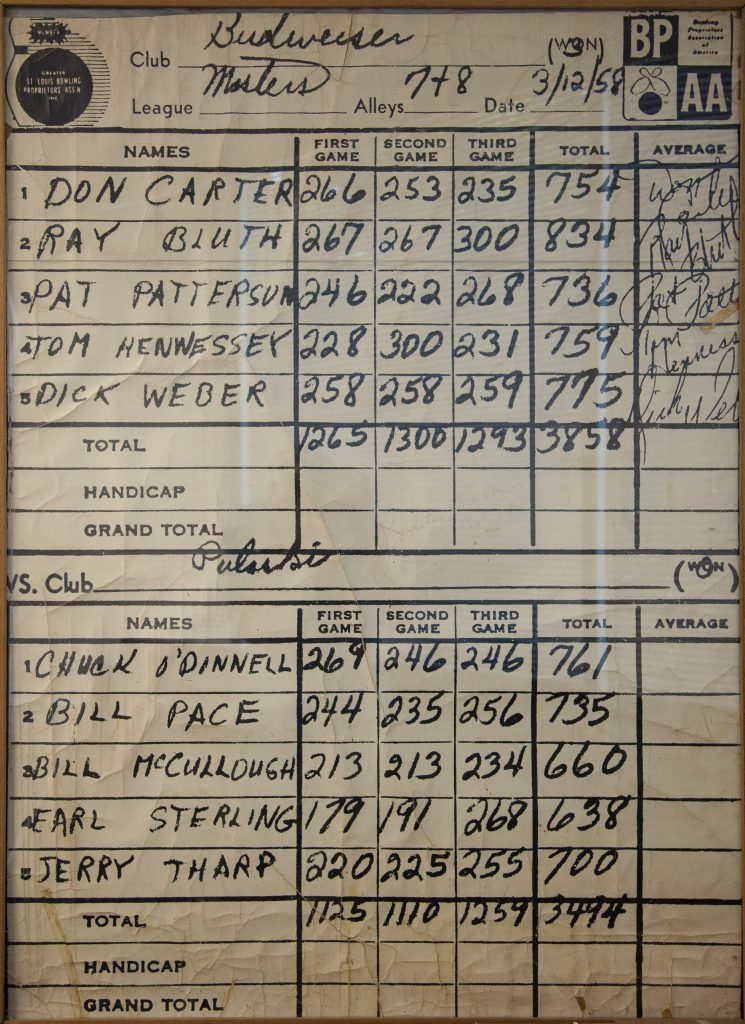 MEMBER
GREATER
ST. LOUIS BOWLING
PROPRIETORS ASS'N
INC.
Club Budweiser (WON) 3
BP AA
Bowling
Proprietors
Association
of
America
League Masters Alleys 7+8 Date 3/12/58
NAMES FIRST GAME SECOND GAME THIRD GAME TOTAL AVERAGE
1 DON CARTER 266 253 235 754
2 RAY BLUTH 267 267 300 834 Ray Bluth
3 PAT PATTERSON 246 222 268 736 Pat Patt
4 TOM HENWESSEY 228 300 231 759 Tom Henness
5 DICK WEBER 258 258 259 775 Dick Weber
TOTAL 1265 1300 1293 3858
HANDICAP
GRAND TOTAL
VS. Club Pulaski (WON) 0
NAMES FIRST GAME SECOND GAME THIRD GAME TOTAL AVERAGE
1 CHUCK O'DINNELL 269 246 246 761
2 BILL PACE 244 235 256 735
3 BILL McCULLOUGH 213 213 234 660
4 EARL STERLING 179 191 268 638
5 JERRY THARP 220 225 255 700
TOTAL 1125 1110 1259 3494
HANDICAP
GRAND TOTAL